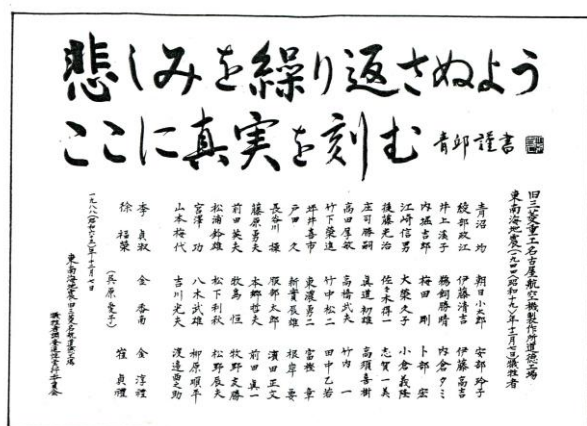 悲しみを繰り返さぬよう
ここに真実を刻む 青邱 謹書
旧三菱重工名古屋航空機製作所道徳工場
東南海地震(一九四四(昭和十九)年十二月七日)犠牲者
青沼 均 朝日小太郎 安部玲子
綾部政江 伊藤清吉 伊藤高吉
井上渓子 鵜飼勝晴 内倉タミ
内堀吉郎 梅田 剛 卜部 宏
江崎信男 大榮久子 小倉義隆
後藤光治 佐々木得一 志賀一美
庄司勝嗣 真道初雄 高須喜樹
高田厚敏 高橋武夫 竹内 一
竹下榮進 竹中松二 田中乙若
坪井喜市 東濃勇二 富樫 章
戸田 久 新實辰雄 根岸 要
長谷川 操 服部太郎 濱田正文
藤原勇夫 本郷哲夫 前田真一
前田英夫 牧島 恒 牧野友勝
松浦鈴雄 松下利秋 松野辰夫
宮澤 功 八木武雄 柳原順平
山本梅代 吉川光夫 渡邉酉之助
李 貞淑 金 香南 金 淳禮
徐 福榮 (呉原愛子) 崔 貞禮
一九八八(昭和六三)年十二月七日
東南海地震旧三菱名航道徳工場
犠牲者調査追悼実行委員会